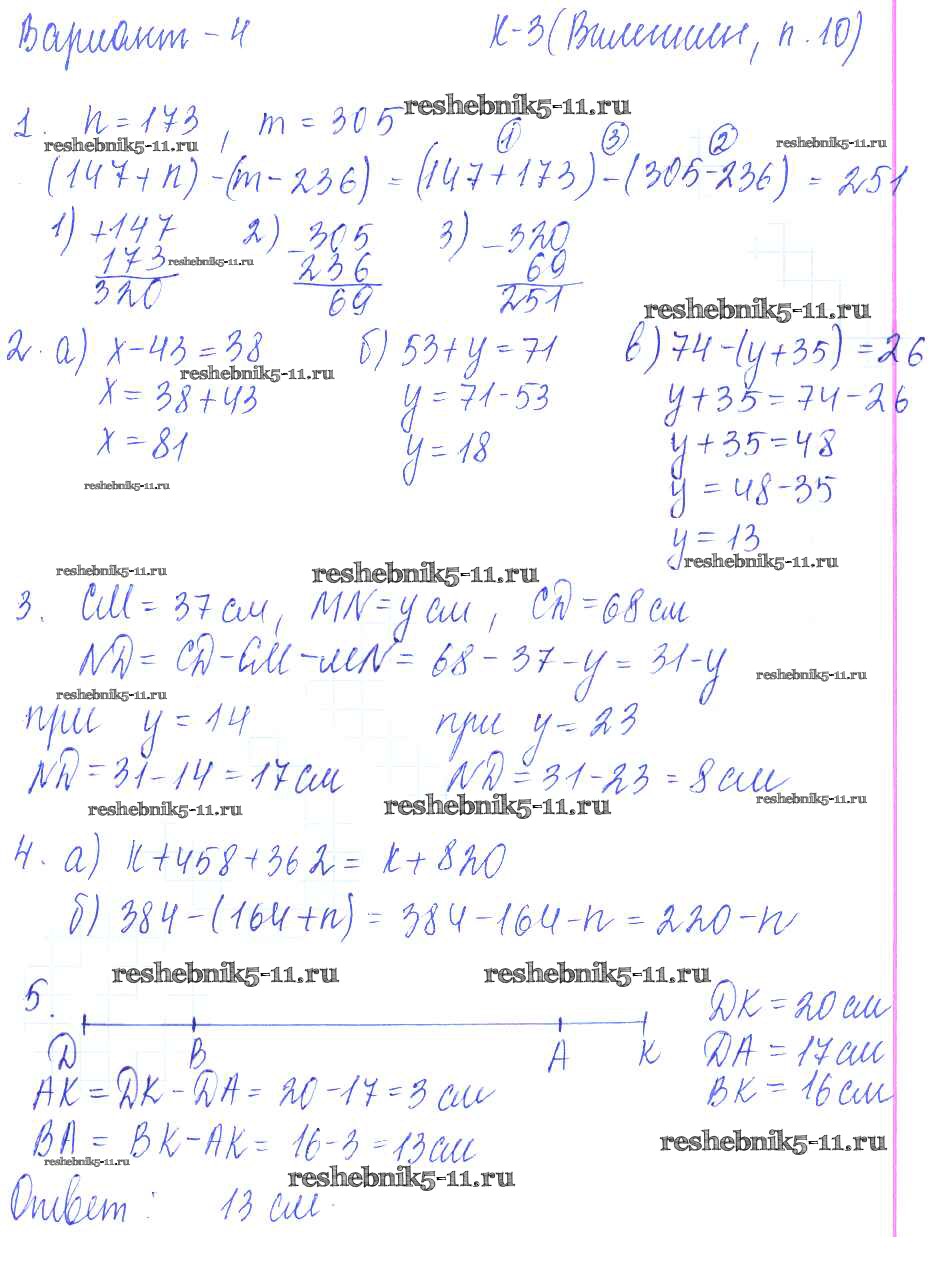 Вариант - 4 К-3 (Виленкин, п. 10)
reshebnik5-11.ru
1. n = 173, m = 305
reshebnik5-11.ru reshebnik5-11.ru
1 3 2
(147+n) - (m-236) = (147+173) - (305-236) = 251
1) +147 2) -305 3) -320
173 236 69
reshebnik5-11.ru
320 69 251
reshebnik5-11.ru
2. а) x-43=38 б) 53+y=71 в) 74-(y+35)=26
reshebnik5-11.ru
x=38+43 y=71-53 y+35=74-26
x=81 y=18 y+35=48
reshebnik5-11.ru
y=48-35
y=13
reshebnik5-11.ru
reshebnik5-11.ru reshebnik5-11.ru
3. CM = 37 см, MN = y см, CD = 68 см
ND = CD-CM-MN = 68-37-y = 31-y
reshebnik5-11.ru
reshebnik5-11.ru
при y = 14 при y = 23
ND = 31-14 = 17 см ND = 31-23 = 8 см
reshebnik5-11.ru reshebnik5-11.ru reshebnik5-11.ru
4. а) к+458+362 = к+820
б) 384-(164+n) = 384-164-n = 220-n
reshebnik5-11.ru reshebnik5-11.ru
5. DК = 20 см
D В А К DА = 17 см
АК = DК-DА = 20-17 = 3 см ВК = 16 см
ВА = ВК-АК = 16-3 = 13 см
reshebnik5-11.ru
reshebnik5-11.ru
reshebnik5-11.ru
Ответ: 13 см.